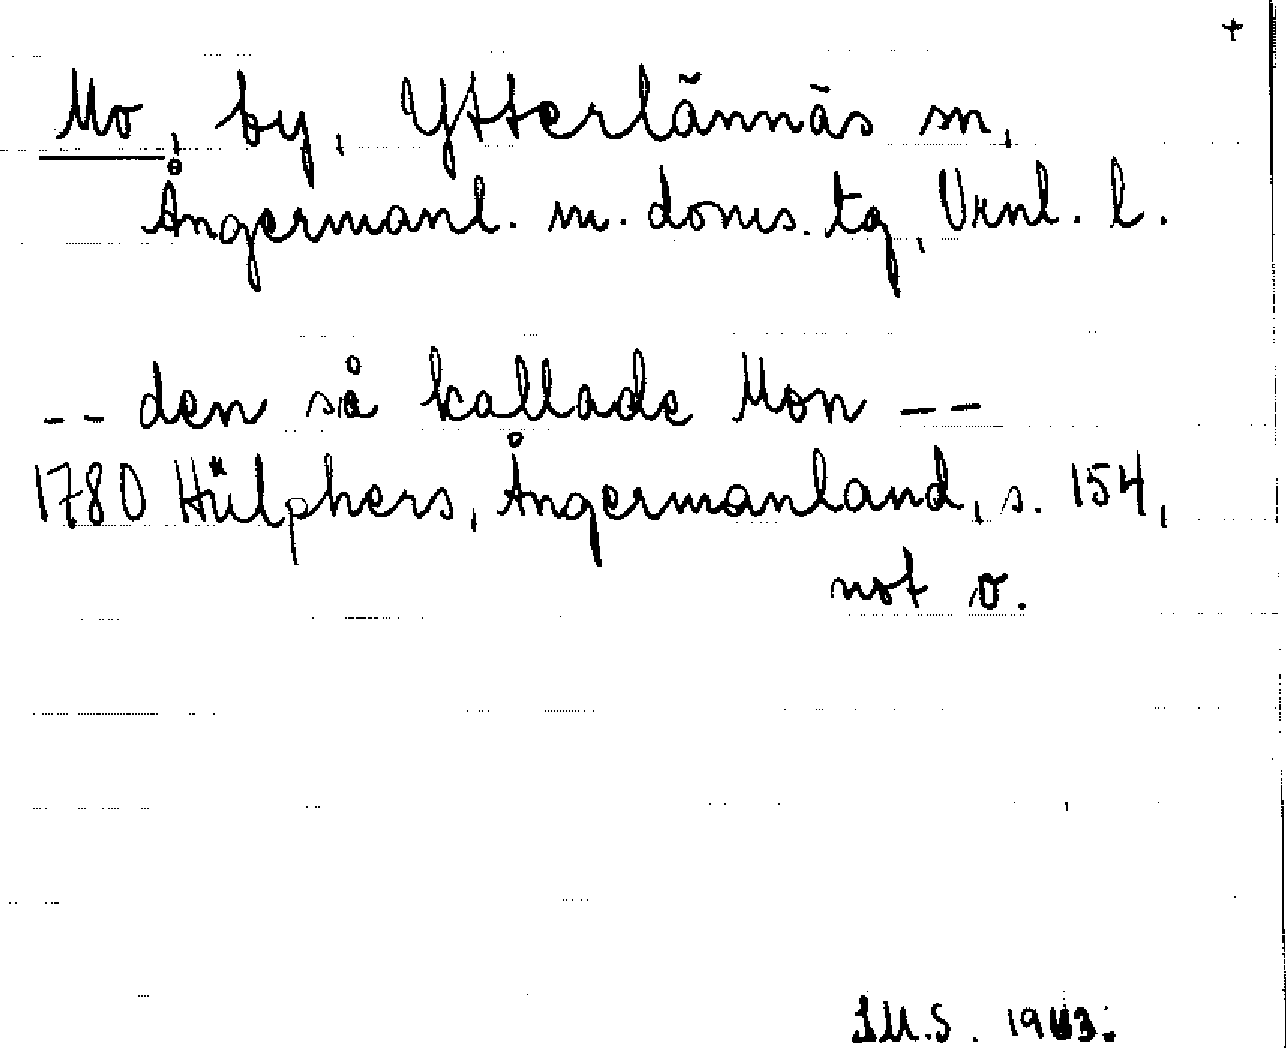 +
Mo, by, Ytterlännäs sn,
Ångermanl. m. doms. tg, Vrnl. l.
-- den så kallade Mon --
1780 Hülphers, Ångermanland, s. 154,
not o.
J.M.S. 1943.